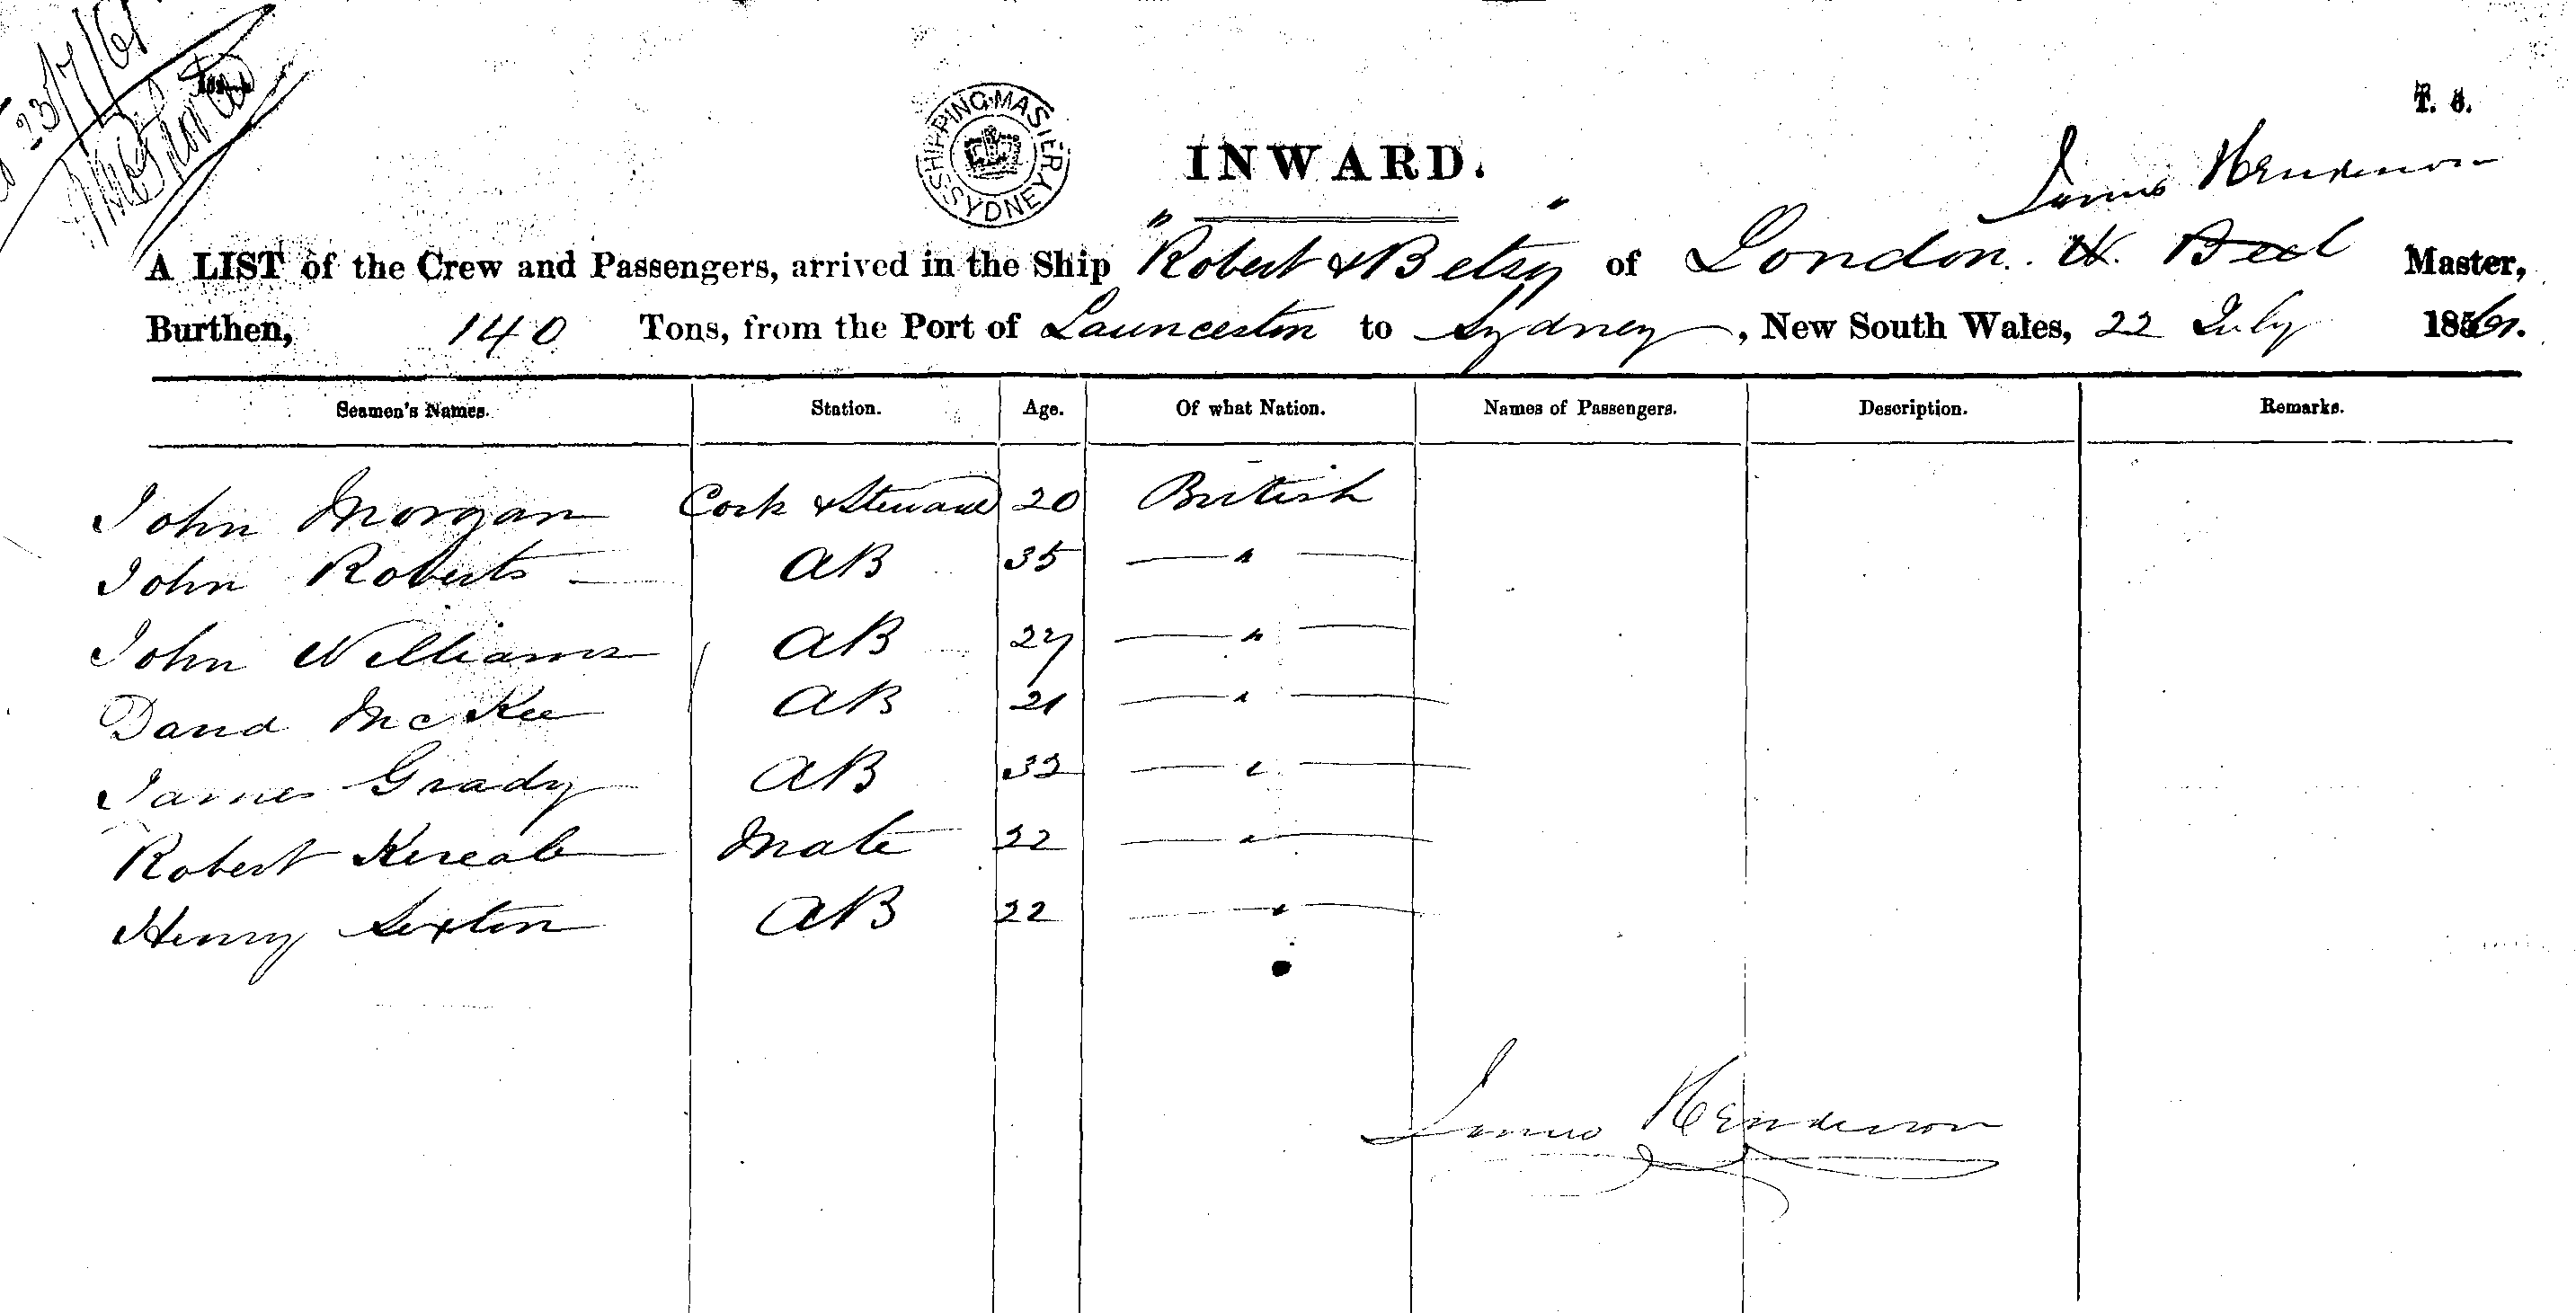 23/7/61
SHIPPING MASTER SYDNEY
T. 6.
INWARD.
James Henderson
A LIST of the Crew and Passengers, arrived in the Ship "Robert & Betsy" of London. Master,
Burthen, 140 Tons, from the Port of Launceston to Sydney, New South Wales, 22 July 1861.
Seamen's Names. Station. Age. Of what Nation. Names of Passengers. Description. Remarks.
John Morgan Cook & Steward 20 British
John Roberts AB 35 — " —
John Williams AB 27 — " —
David McKee AB 21 — " —
James Grady AB 32 — " —
Robert Mate 22 — " —
Henry Sexton AB 22 — " —
James Henderson